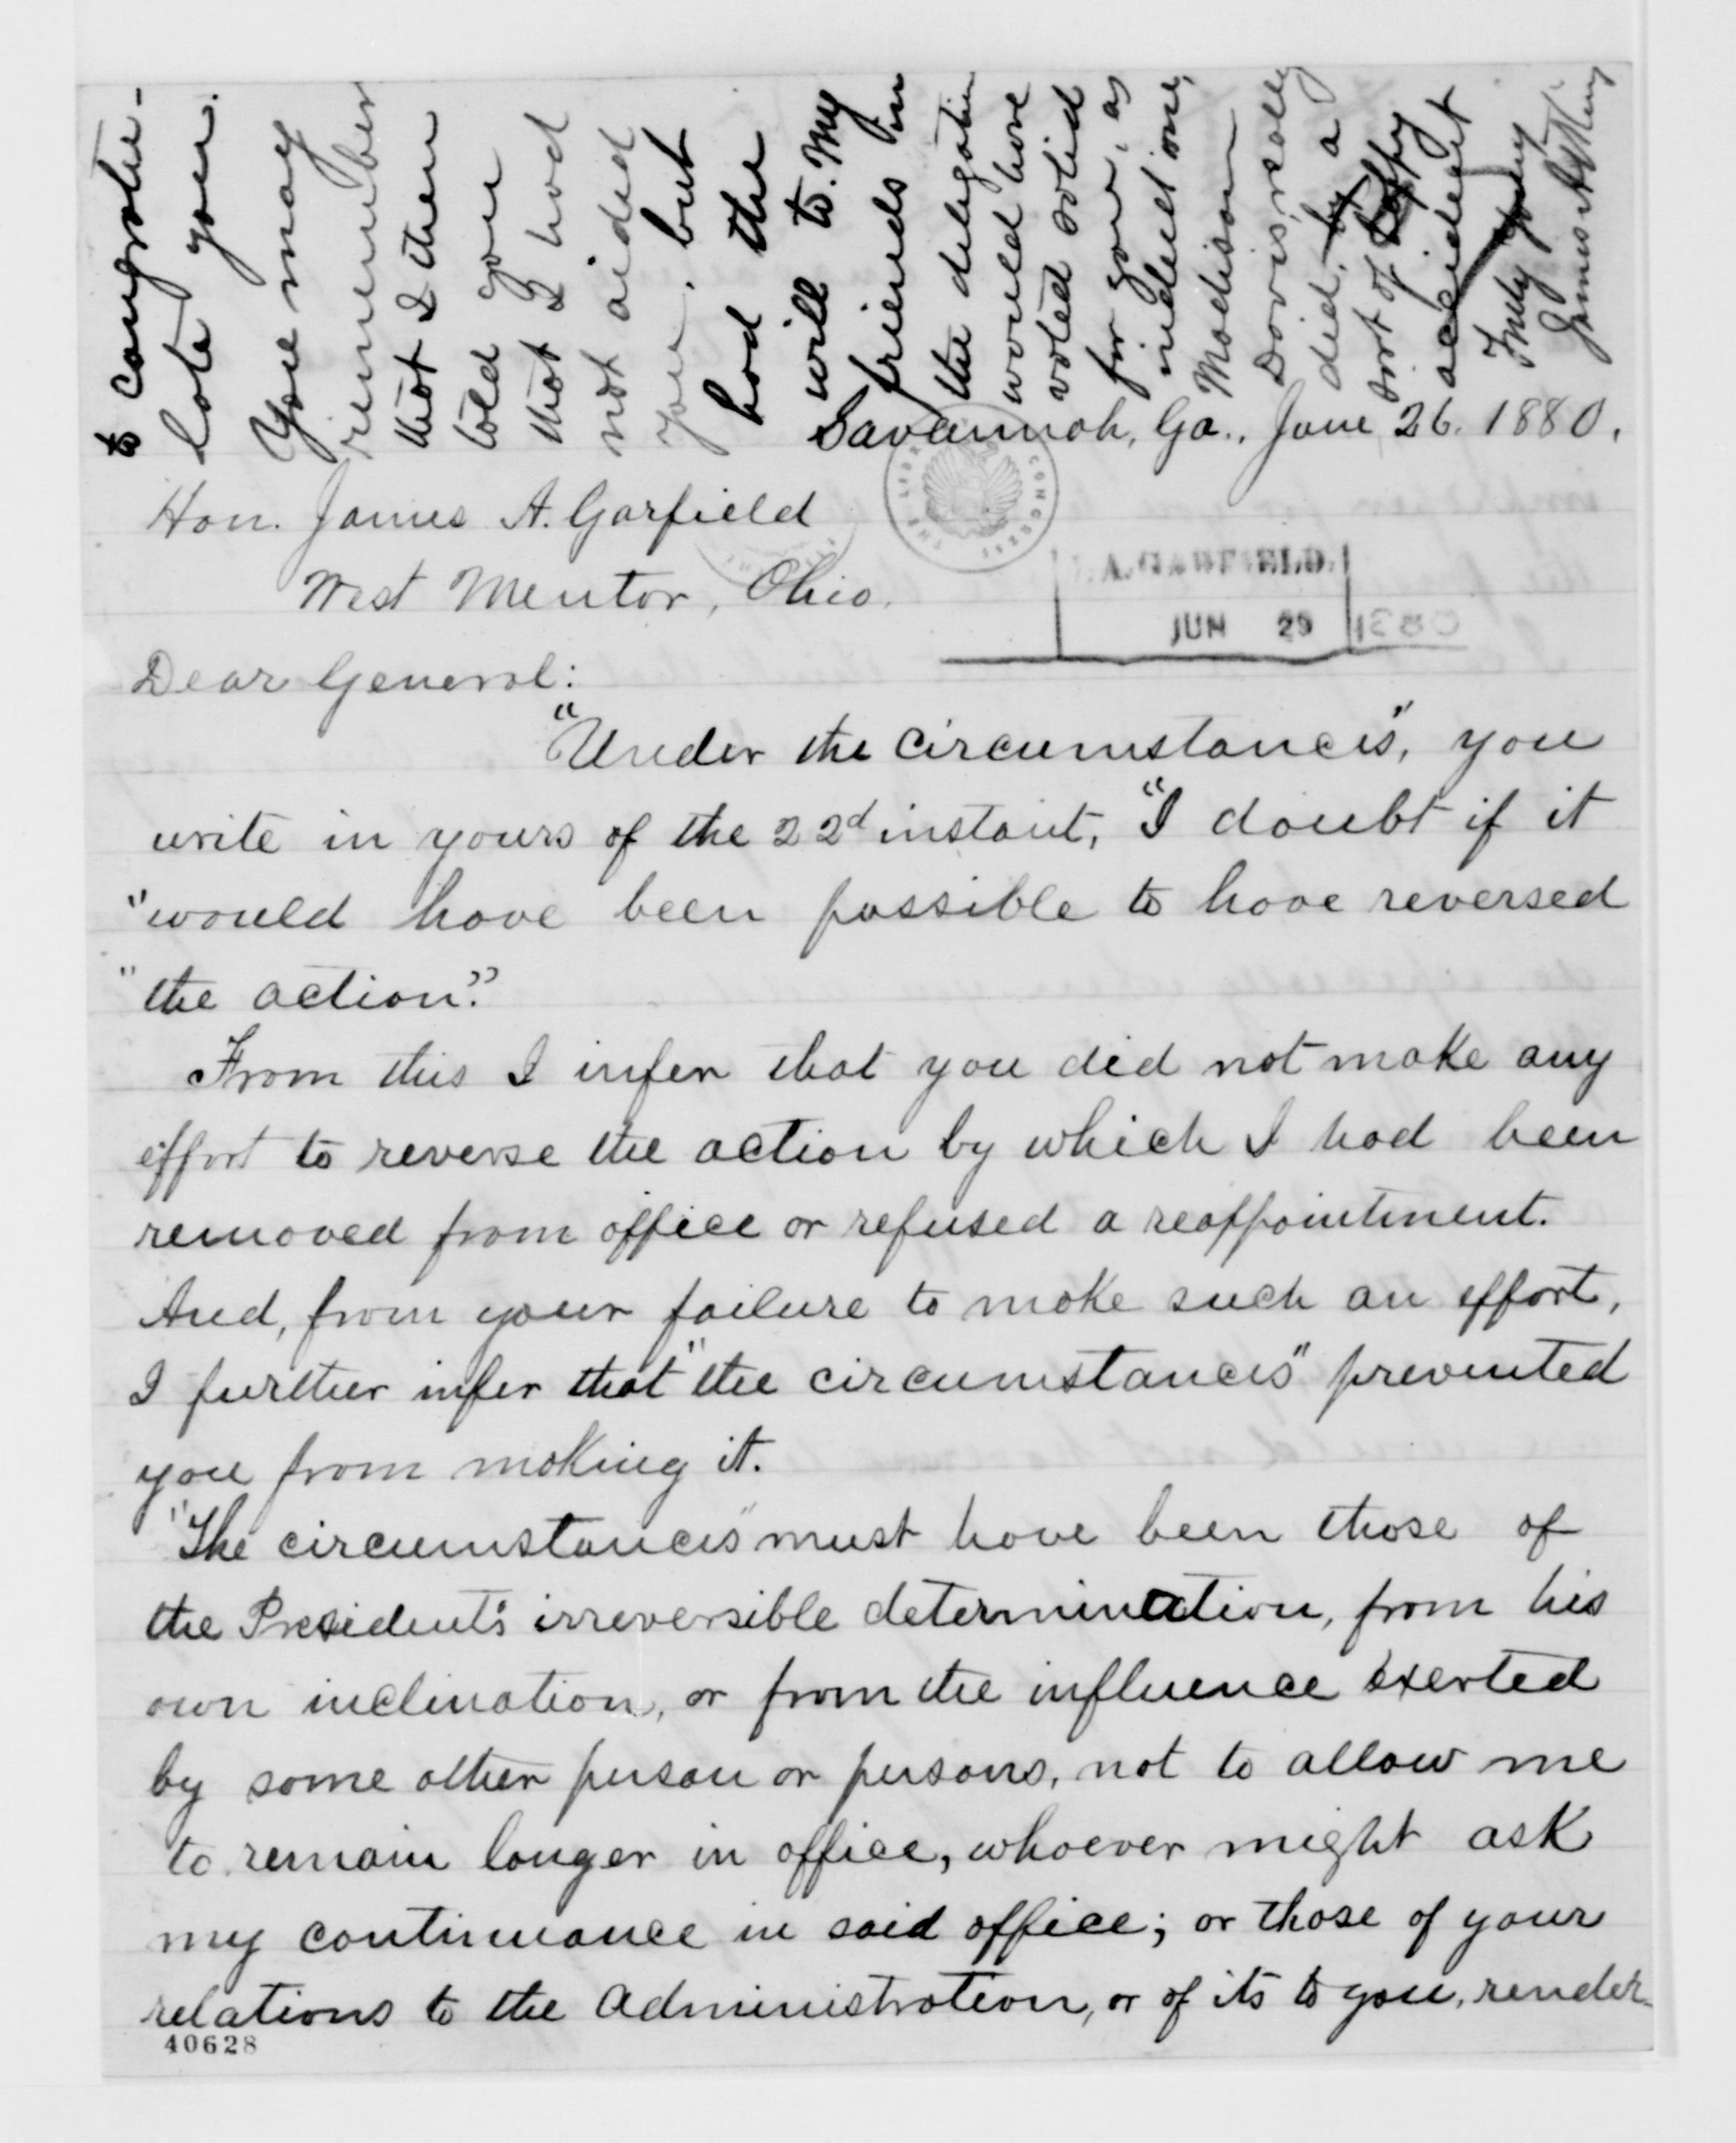 to congratu-
late you.
You may
remember
that I then
told you
that I had
not aided
you, but
had the
will to. My
friends in
the delegation
would have
voted solid
for you, as
indeed one,
Madison
Davis, really
did, by a
sort of happy
accident
Truly yours
James Atkins
Savannah, Ga., June 26. 1880.
Hon. James A. Garfield
West Mentor, Ohio.
THE LIBRARY CONGRESS
J. A. GARFIELD.
JUN 29 1880
Dear General:
"Under the circumstances", you
write in yours of the 22d instant, "I doubt if it
"would have been possible to have reversed
"the action."
From this I infer that you did not make any
effort to reverse the action by which I had been
removed from office or refused a reappointment.
And, from your failure to make such an effort,
I further infer that "the circumstances" prevented
you from making it.
"The circumstances" must have been those of
the President's irreversible determination, from his
own inclination, or from the influence exerted
by some other person or persons, not to allow me
to remain longer in office, whoever might ask
my continuance in said office; or those of your
relations to the Administration, or of its to you, render-
40628